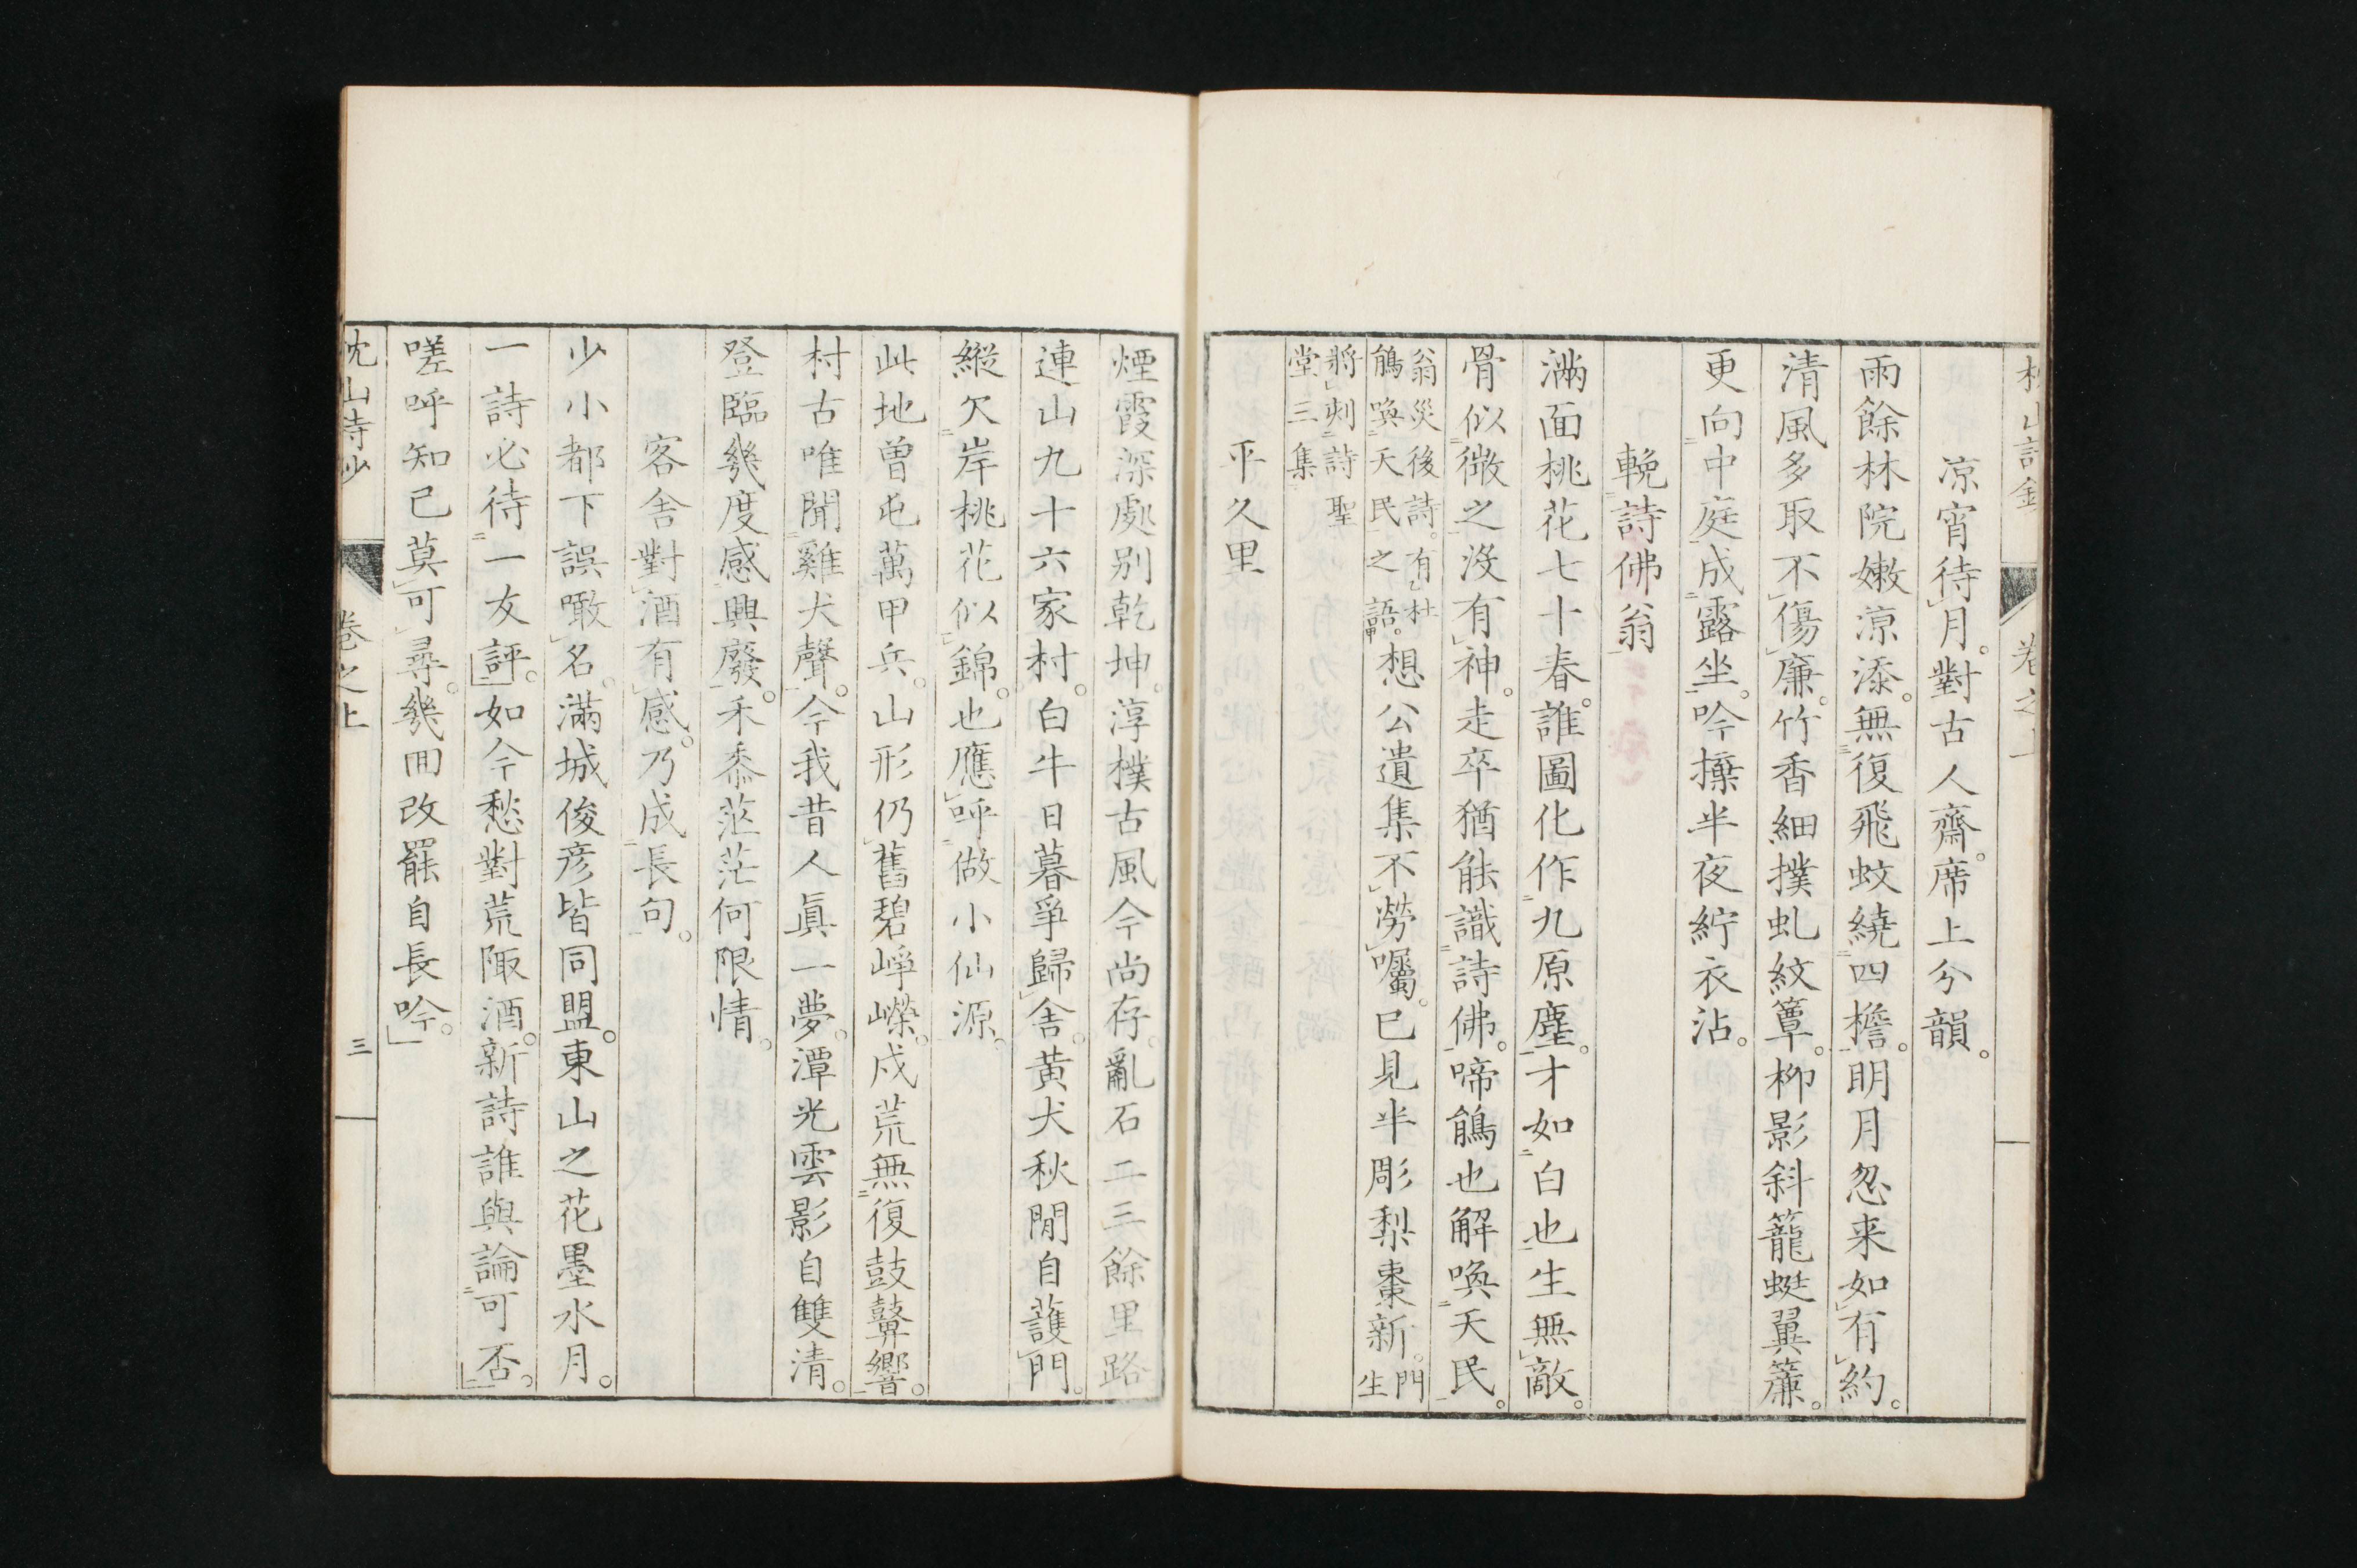 枕山詩鈔 卷之上
凉宵待月。對古人齋。席上分韻。
雨餘林院嫩凉添。無復飛蚊繞四檐。明月忽来如有約。
清風多取不傷廉。竹香細撲虬紋簟。柳影斜籠蜓翼簾。
更向中庭成露坐。吟擪半夜紵衣沾。
輓詩佛翁
滿面桃花七十春。誰圖化作九原塵。才如白也生無敵。
骨似微之沒有神。走卒猶能識詩佛。啼鵑也解喚天民。
翁災後詩。有杜
鵑喚天民之語。
想公遺集不勞囑。已見半彫梨棗新。
門生
將刺詩聖
堂三集
平久里
煙霞深處别乾坤。淳樸古風今尚存。亂石二三餘里路
連山九十六家村。白牛日暮爭歸舍。黃犬秋閒自護門。
縱欠岸桃花似錦。也應呼做小仙源。
此地曾屯萬甲兵。山形仍舊碧崢嶸。戍荒無復鼓鼙響。
村古唯聞雞犬聲。今我昔人眞一夢。潭光雲影自雙清。
登臨幾度感興廢。禾黍茫茫何限情。
客舍對酒有感。乃成長句。
少小都下誤噉名。滿城俊彦皆同盟。東山之花墨水月。
一詩必待一友評。如今愁對荒陬酒。新詩誰與論可否。
嗟呼知已莫可尋。幾囬改罷自長吟。
枕山詩鈔 卷之上 三